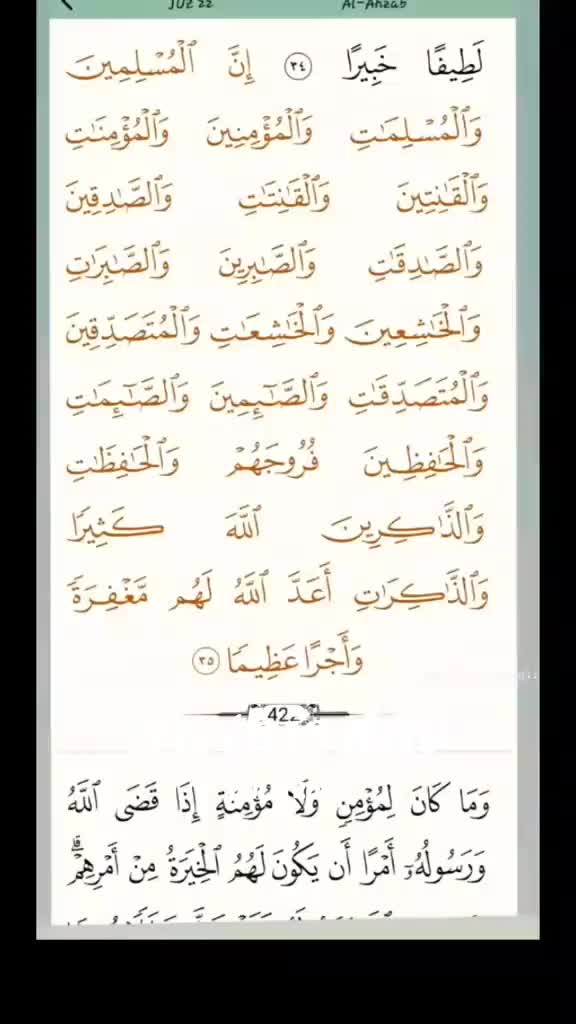 JUZ 22 Al-Ahzab
لَطِيفًا خَبِيرًا ٣٤ إِنَّ ٱلْمُسْلِمِينَ
وَٱلْمُسْلِمَٰتِ وَٱلْمُؤْمِنِينَ وَٱلْمُؤْمِنَٰتِ
وَٱلْقَٰنِتِينَ وَٱلْقَٰنِتَٰتِ وَٱلصَّٰدِقِينَ
وَٱلصَّٰدِقَٰتِ وَٱلصَّٰبِرِينَ وَٱلصَّٰبِرَٰتِ
وَٱلْخَٰشِعِينَ وَٱلْخَٰشِعَٰتِ وَٱلْمُتَصَدِّقِينَ
وَٱلْمُتَصَدِّقَٰتِ وَٱلصَّٰٓئِمِينَ وَٱلصَّٰٓئِمَٰتِ
وَٱلْحَٰفِظِينَ فُرُوجَهُمْ وَٱلْحَٰفِظَٰتِ
وَٱلذَّٰكِرِينَ ٱللَّهَ كَثِيرًا
وَٱلذَّٰكِرَٰتِ أَعَدَّ ٱللَّهُ لَهُم مَّغْفِرَةً
وَأَجْرًا عَظِيمًا ٣٥
42
وَمَا كَانَ لِمُؤْمِنٍ وَلَا مُؤْمِنَةٍ إِذَا قَضَى ٱللَّهُ
وَرَسُولُهُۥٓ أَمْرًا أَن يَكُونَ لَهُمُ ٱلْخِيَرَةُ مِنْ أَمْرِهِمْ ۗ